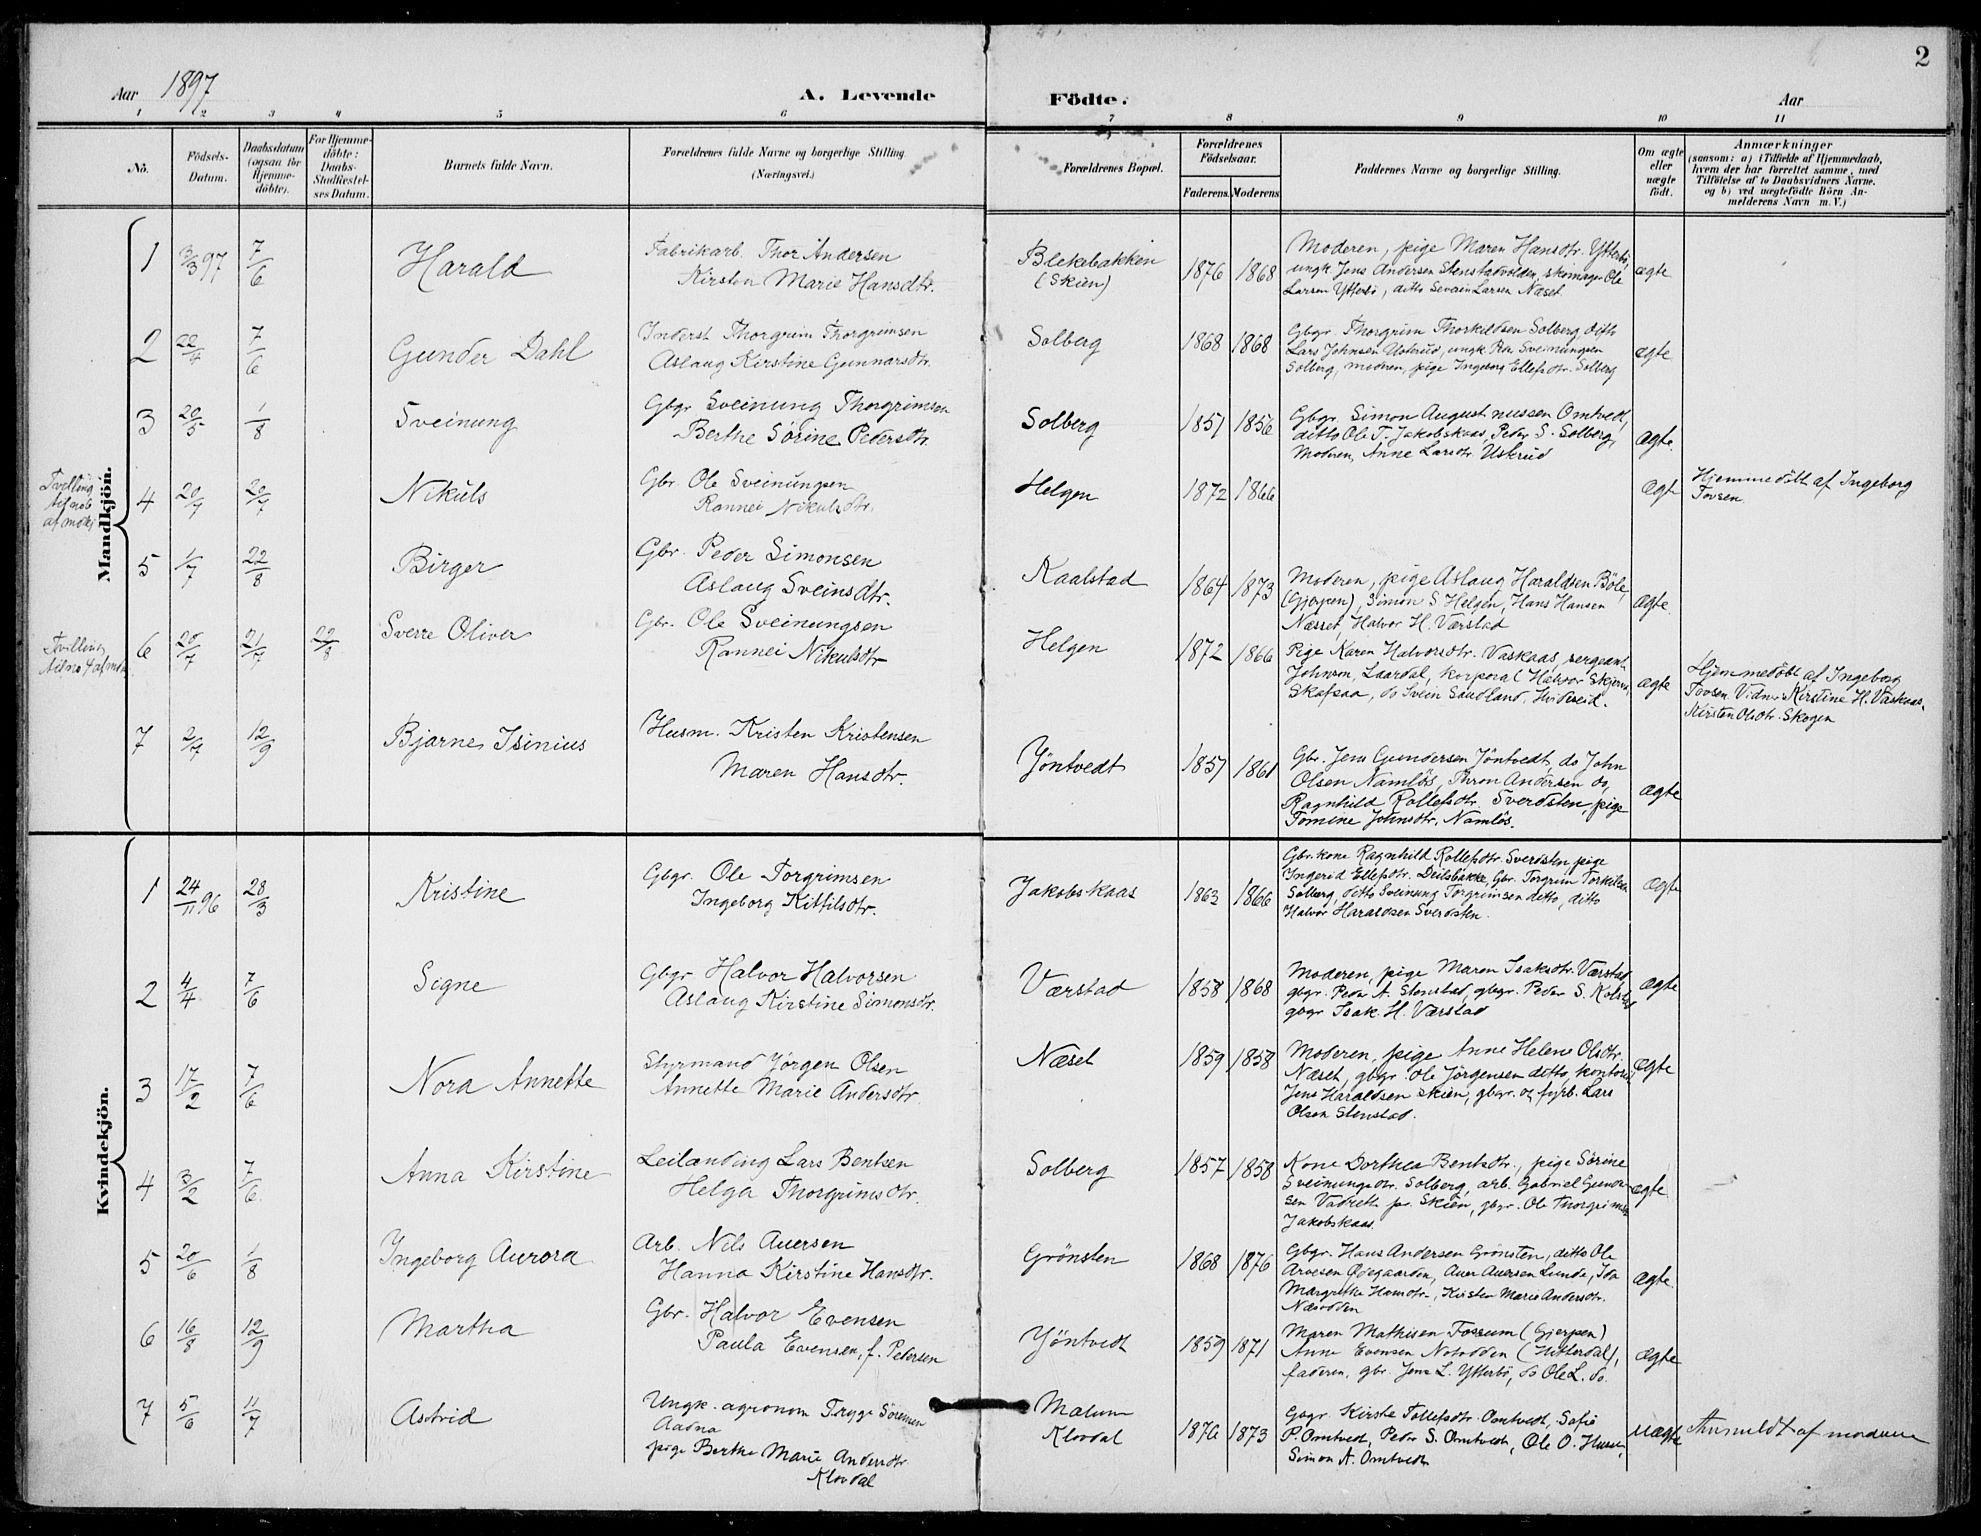 2
Aar 1897
A. Levende
Födte.
Aar
1 2 3 4 5 6 7 8 9 10 11
No.
Födsels-Datum.
Daabsdatum (ogsaa for Hjemme-döbte).
For Hjemme-döbte: Daabs-Stadfæstel-ses Datum.
Barnets fulde Navn.
Forældrenes fulde Navne og borgerlige Stilling
(Næringsvei.)
Forældrenes Bopæl.
Forældrenes Födselsaar.
Faderens. Moderens
Faddernes Navne og borgerlige Stilling.
Om ægte eller uægte födt.
Anmærkninger
(saasom: a) i Tilfælde af Hjemmedaab, hvem der har forrettet samme, med Tilföielse af to Daabsvidners Navne. og b) ved uægtefödte Börn An-melderens Navn m. V.)
Mandkjön.
1 3/3 97 7/6 Harald
Fabrikarb. Thor Andersen
Kirsten Marie Hansdtr.
Blekebakken
(Skien)
1876 1868
Moderen, pige Maren Hansdtr. Ytterbö,
ungk. Jens Andersen Stenstadvolden, skomager Ole
Larsen Ytterbö, ditto Severin Larsen Næset
ægte
2 22/4 7/6 Gunder Dahl
Inderst Thorgrim Thorgrimsen
Aslaug Kirstine Gunnarsdtr.
Solberg 1868 1868
Gbgr. Thorgrim Thorkildsen Solberg, ditto
Lars Johnsen Usterud, ungk. Peder Sveinungsen
Solberg, moderen, pige Ingeborg Ellefsdtr. Solberg
ægte
3 20/5 1/8 Sveinung
Gbgr Sveinung Thorgrimsen
Berthe Sörine Pedersdtr.
Solberg 1851 1856
Gbgr. Simon Augustinussen Omtvedt,
ditto Ole T. Jakobskaas, Peder S. Solberg,
Moderen, Anne Larsdtr. Uskrud
ægte.
Tvilling
til no 6
4 20/7 20/7 Nikuls
Gbr. Ole Sveinungsen
Rannei Nikulsdtr.
Helgen 1872 1866
ægt
Hjemmedöbt af Ingeborg
Tovsen
5 1/7 22/8 Birger
Gbr. Peder Simonsen
Aslaug Sveinsdtr.
Kaalstad 1864 1873
Moderen, pige Aslaug Haraldsen Böle,
(Gjerpen), Simon S Helgen, Hans Hansen
Næset, Halvor H. Værstad
ægte.
Tvilling
til no 4 af mdk
6 20/7 21/7 22/8 Sverre Oliver
Gbr. Ole Sveinungsen
Rannei Nikulsdtr
Helgen 1872 1866
Pige Karen Halvorsdtr. Vaskaas, sergeant
Johnsen, Laardal, korporal Halvor Skjerva,
Skafsaa, do Svein Sandland, Hvideseid.
ægte
Hjemmedöbt af Ingeborg
Tovsen Vidner Kirstine H. Vaskaas,
Kirsten Olsdtr. Skogen
7 2/7 12/9 Bjarne Isinius
Husm. Kristen Kristensen
Maren Hansdtr.
Yöntvedt 1857 1861
Gbr. Jens Gundersen Jöntvedt, do John
Olsen Namlös, Thron Andersen do,
Ragnhild Rollefsdtr. Sverdsten, pige
Tomine Johnsdtr. Namlös.
ægte
Kvindekjön.
1 24/11 96 28/3 Kristine
Gbgr. Ole Torgrimsen
Ingeborg Kittilsdtr.
Jakobskaas 1863 1866
Gbr. kone Ragnhild Rollefsdtr. Sverdsten, pige
Ingerid Ellefsdtr. Deilsbakke, Gbr. Torgrim Torkilsen
Solberg, ditto Sveinung Torgrimsen ditto, ditto
Halvor Haraldsen Sverdsten.
ægte
2 4/4 7/6 Signe
Gbgr. Halvor Halvorsen
Aslaug Kirstine Simonsdtr.
Værstad 1858 1868
Moderen, pige Maren Isaksdtr. Værstad
gbgr. Peder A. Stenstad, gbgr. Peder S. Kolstad
gbgr Isak. H. Værstad
ægte
3 17/2 7/6 Nora Annette
Styrmand Jörgen Olsen
Annette Marie Andersdtr.
Næset 1859 1858
Moderen, pige Anne Helene Olsdtr.
Næset, gbgr. Ole Jörgensen ditto, kontorist
Jens Haraldsen Skien, gbgr. og fyrb. Lars
Olsen Stenstad.
ægte
4 3/2 7/6. Anna Kirstine
Leilænding Lars Bentsen
Helga Thorgrimsdtr.
Solberg 1857 1858
Kone Dorthea Bentsdtr., pige Sörine
Sveinungsdtr. Solberg, arb. Gabriel Gunder-
sen Vadrette pr. Skien, gbgr. Ole Thorgrimsen
Jakobskaas
ægte.
5 20/6 1/8 Ingeborg Aurora
Arb. Nils Auersen
Hanna Kirstine Hansdtr.
Grönsten 1868 1876
Gbgr. Hans Andersen Grönsten, ditto Ole
Arvesen Ödegaarden, Auer Auersen Lunde, Ida
Margrethe Hansdtr., Kirsten Marie Andersdtr.
Næsodden
ægte.
6 16/8 12/9 Martha
Gbr. Halvor Evensen
Paula Evensen, f. Petersen
Yöntvedt 1859 1871
Maren Mathisen Fossum (Gjerpen)
Anne Evensen Notodden (Hitterdal),
faderen, gbr. Jens L. Ytterbö, do Ole L. do.
ægte
7 5/6 11/7 Astrid
Ungk. agronom Trygve Sörensen
Aadna
pige Berthe Marie Andersdtr
Klovdal
Melum
Klovdal
1876 1873
Gbgr. Kirsti Tollefsdtr. Omtvedt, Sofie
P. Omtvedt, Peder S. Omtvedt, Ole O. Hussen,
Simon A. Omtvedt
uægte
Anmeldt af moderen